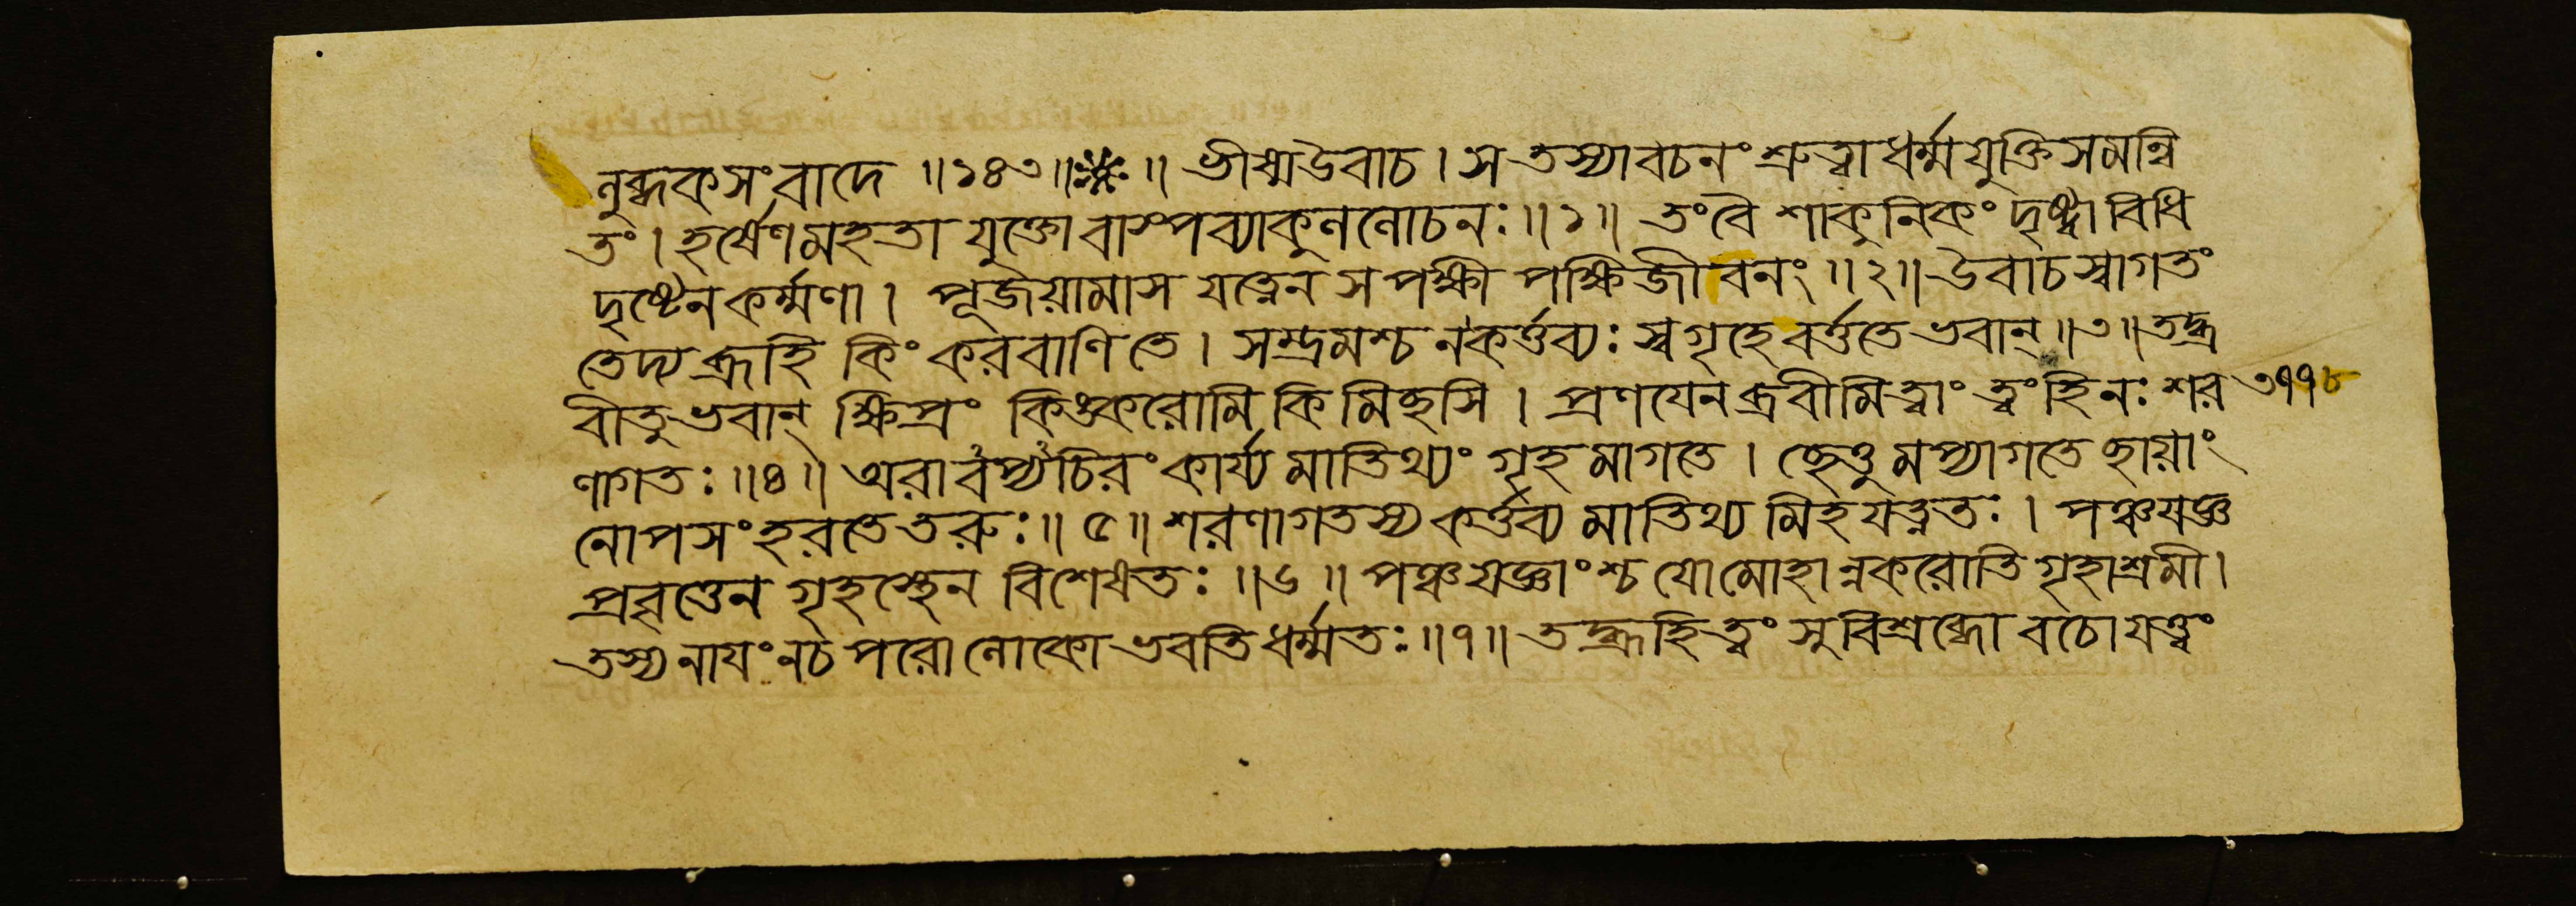 লুব্ধকসংবাদে ॥১৪৩॥ ॥ ভীষ্মউবাচ । স তস্যাবচনং শ্রুত্বা ধর্ম্মযুক্তিসমন্বি
তং । হর্ষেণমহতা যুক্তো বাস্পব্যাকুললোচনঃ ॥১॥ তংবৈ শাকুনিকং দৃষ্ট্বা বিধি
দৃষ্টেনকর্ম্মণা । পূজয়ামাস যত্নেন স পক্ষী পক্ষিজীবনং ॥২॥ উবাচস্বাগতং
তেদ্য ব্রূহি কিং করবাণি তে । সম্ভ্রমশ্চ নকর্ত্তব্যঃ স্বগৃহে বর্ত্ততে ভবান্ ॥৩॥ তদ্ব্র
বীতু ভবান্ ক্ষিপ্রং কিঙ্করোমি কিমিছসি । প্রণযেনব্রবীমিত্বাং ত্বংহিনঃ শর ৩৭৭৮
ণাগতঃ ॥৪॥ অরাবপ্যুচিরং কার্য্যমাতিথ্যং গৃহমাগতে । ছেত্তুমপ্যাগতে ছায়াং
নোপসংহরতে তরুঃ ॥৫॥ শরণাগতস্য কর্ত্তব্যমাতিথ্যমিহযত্নতঃ । পঞ্চযজ্ঞ
প্রবৃত্তেন গৃহস্থেন বিশেষতঃ ॥৬॥ পঞ্চযজ্ঞাংশ্চ যোমোহান্নকরোতি গৃহাশ্রমী ।
তস্যনাযংনচপরোলোকো ভবতিধর্ম্মতঃ ॥৭॥ তদ্ব্রূহিত্বং সুবিশ্রব্ধো বচোযত্ত্বং